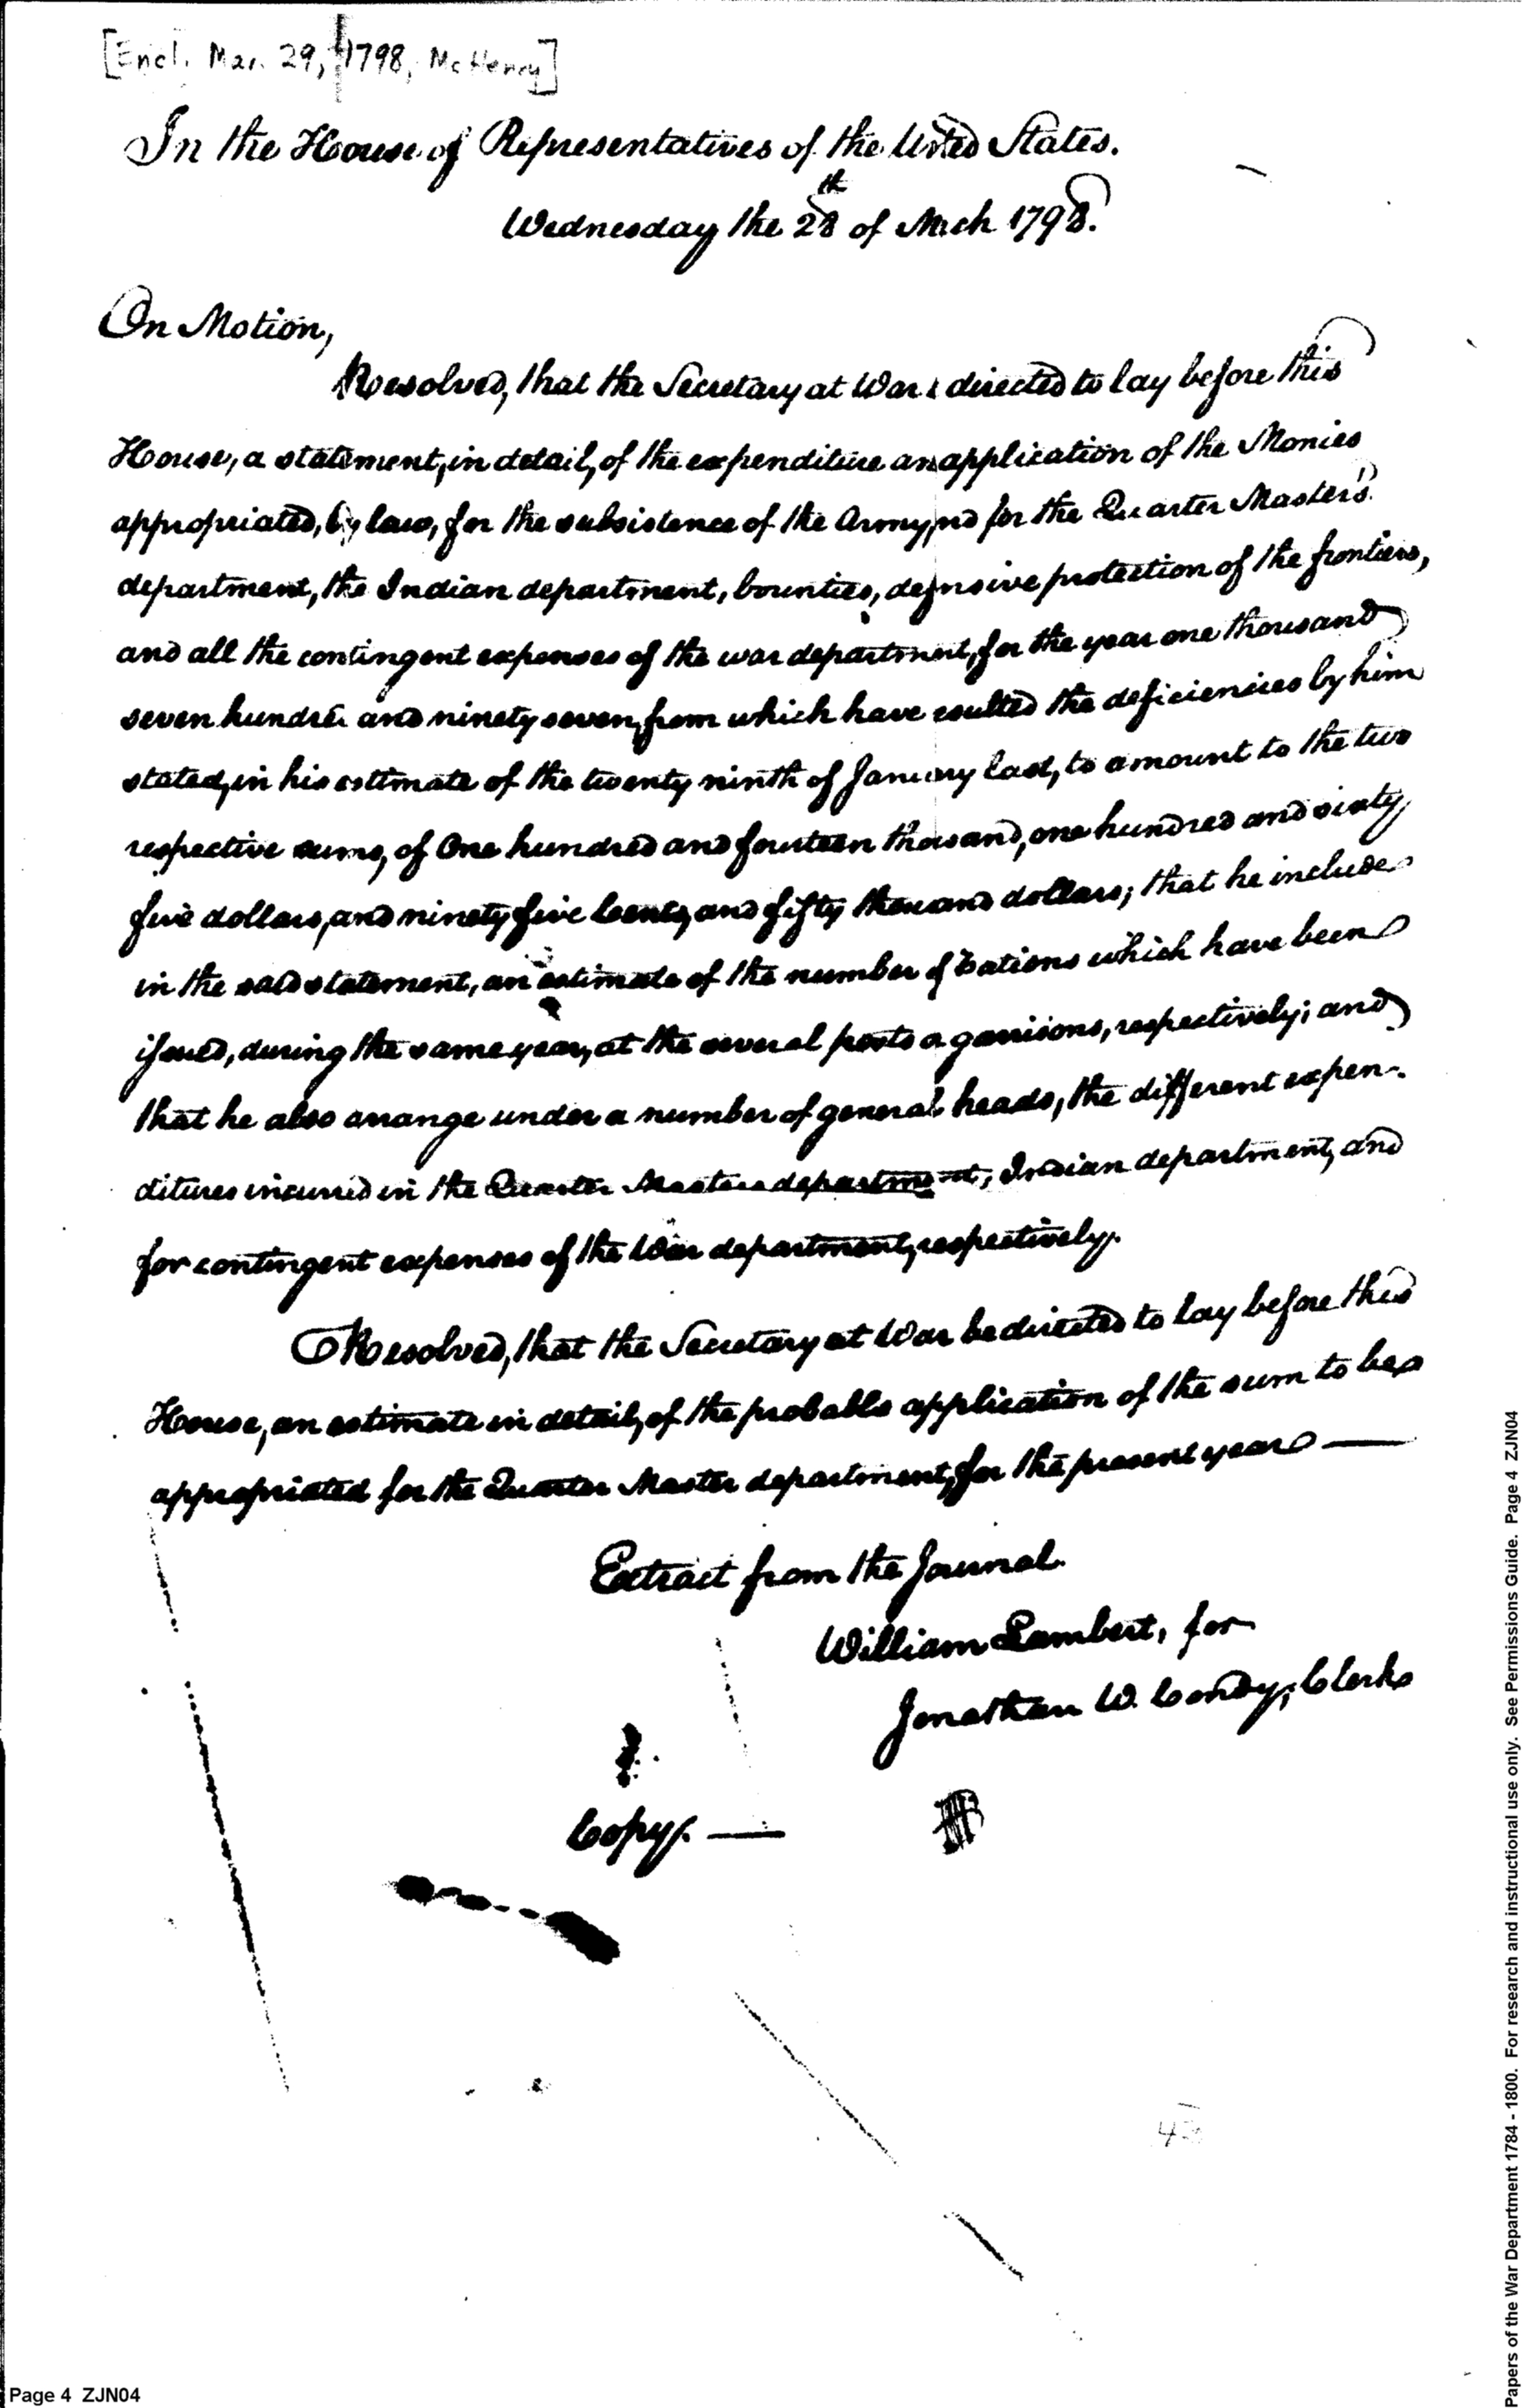 [Encl. Mar. 29, 1798, McHenry]
In the House of Representatives of the United States.
Wednesday the 28th of March 1798.
On Motion,
Resolved, that the Secretary at War directed to lay before this
House, a statement, in detail, of the expenditure an application of the Monies
appropriated, by law, for the subsistence of the Army, nd for the Quarter Master's
department, the Indian department, bounties, defensive protection of the frontiers,
and all the contingent expenses of the war department, for the year one thousand
seven hundred and ninety seven, from which have resulted the deficiencies by him
stated, in his estimate of the twenty ninth of January last, to amount to the two
respective sums, of One hundred and fourteen thousand, one hundred and sixty
five dollars, and ninety five Cents, and fifty thousand dollars; that he include
in the said statement, an estimate of the number of rations which have been
issued, during the same year, at the several posts o garrisons, respectively; and
that he also arrange under a number of general heads, the different expen-
ditures incurred in the Quarter Masters department, Indian department, and
for contingent expenses of the War department, respectively.
Resolved, that the Secretary at War be directed to lay before this
House, an estimate in detail, of the probable application of the sum to be
appropriated for the Quarter Master department, for the present year —
Extract from the Journal.
William Lambert, for
Jonathan W. Condy, Clerk
Copy. —
Page 4 ZJN04
Papers of the War Department 1784 - 1800. For research and instructional use only. See Permissions Guide. Page 4 ZJN04